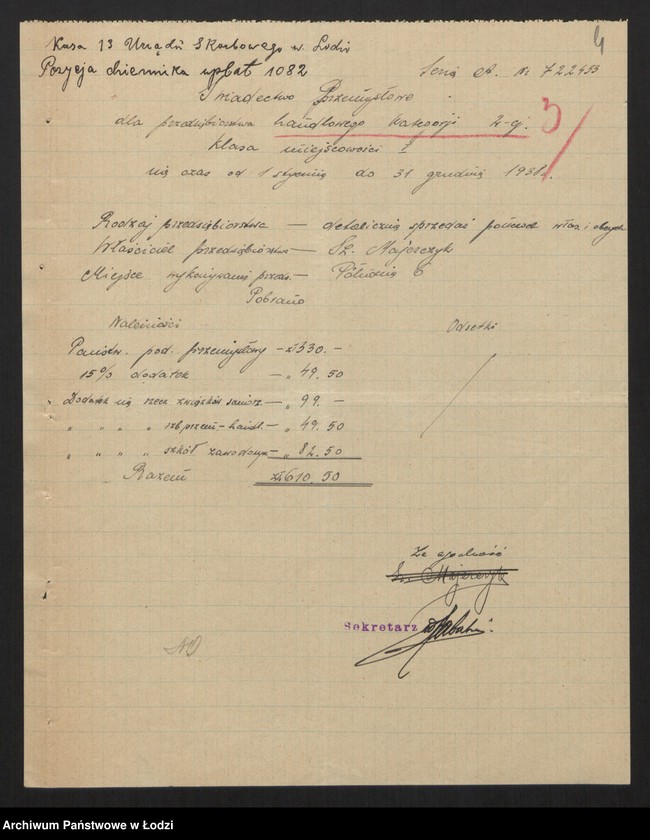 4
Kasa 13 Urzędu Skarbowego w Łodzi
Pozycja dziennika wpłat 1082
Seria A. Nr 722433
Świadectwo Przemysłowe
dla przedsiębiorstwa handlowego kategorji 2-ej.
Klasa miejscowości I
na czas od 1 stycznia do 31 grudnia 1938r.
Rodzaj przedsiębiorstwa — detaliczna sprzedaż pończoch włas. i obcych
Właściciel przedsiębiorstwa — Sz. Majerczyk
Miejsce wykonywania przeds. — Północna 6
Pobrano
Należności
Odsetki
Państw. pod. przemysłowy – zł 330. –
15% dodatek — „ 49.50
Dodatek na rzecz związków samorz. — „ 99. –
„ „ „ „ izb przem.-handl. — „ 49.50
„ „ „ „ szkół zawodowych — „ 82.50
Razem zł 610.50
Za zgodność
Sz. Majerczyk
Sekretarz
Archiwum Państwowe w Łodzi